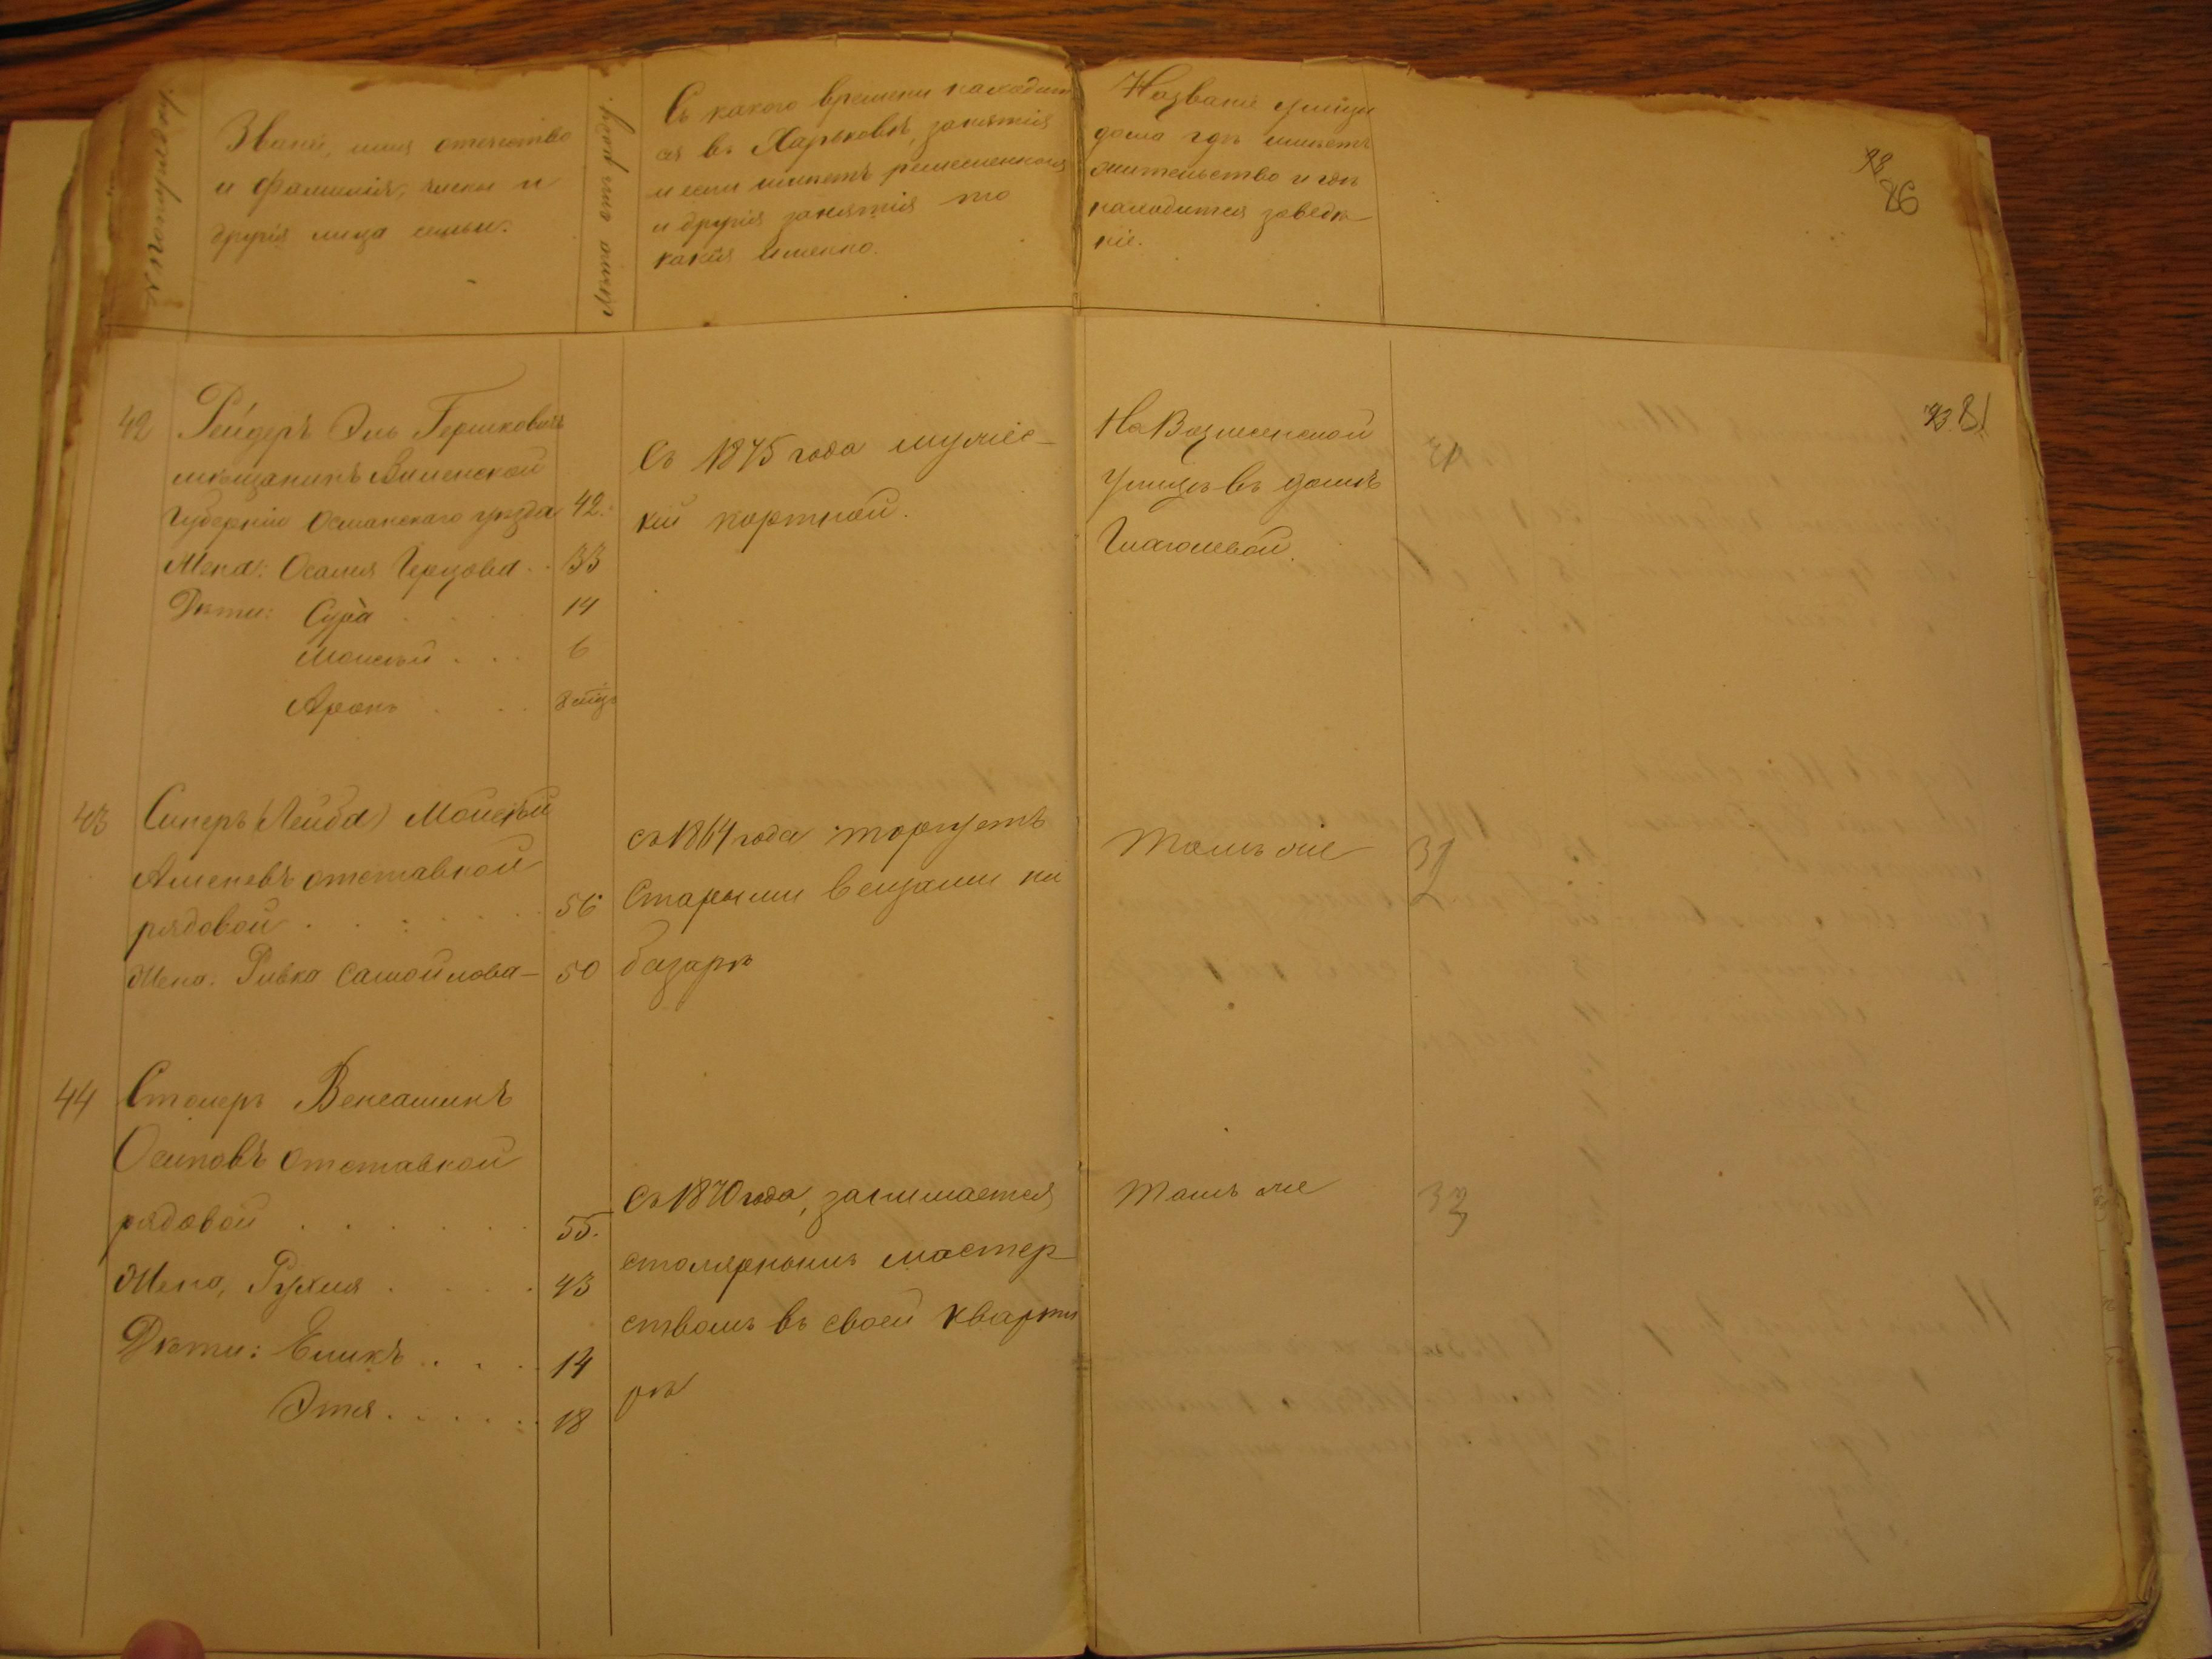 № по порядку.
Званіе, имя отчество
и фамилія, жены и
другія лица семьи.
сколько отъ роду.
Съ какого времени находит
ся въ Харьковѣ, занятія
и если имѣетъ ремесленныя
и другія занятія то
какія именно.
Названіе улицы
дома гдѣ имѣетъ
жительство и гдѣ
находится заведе-
ніе.
86
81
42 Рейдеръ Эль Гершковичъ
мѣщанинъ Виленской
Губерніи Осмянскаго уѣзда 42.
Жена: Герцова . . 33
Дѣти: Сура . . . 14
Моисѣй . . . 6
Аронъ . . . 8 мѣц.
Съ 1875 года мужес-
кій портной.
На Вознесенской
Улицѣ въ домѣ
31
43 Сиперъ (Лейба) Моисѣй
отставной
рядовой . . : . . . . 56
Жена. Ривка Самойлова — 50
съ 1864 года торгуетъ
Старыми вещами на
базарѣ
Тамъ же
32
44 Столеръ
Осиповъ Отставной
рядовой . . . . . . 55.
Жена, Рухля . . . . 43
Дѣти: . . . 14
Этя . . . . . 18
Съ 1870 года, занимается
столярнымъ мастер-
ствомъ въ своей кварти
рѣ
Тамъ же
33